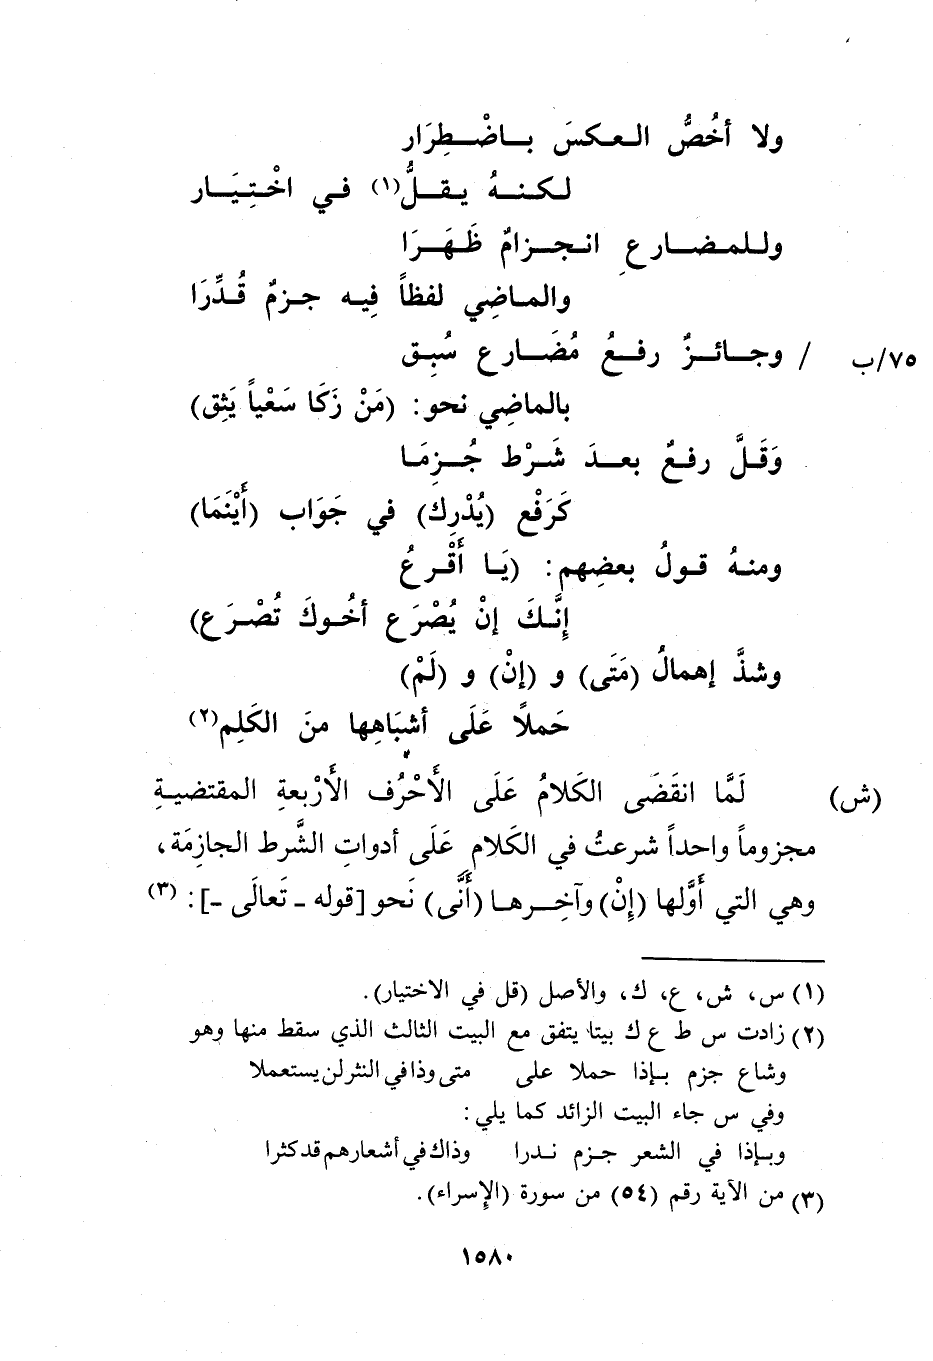 ولا أخُصُّ العكسَ باضْطِرَار
لكنهُ يقلُّ(١) في اخْتِيَار
وللمضارعِ انجزامٌ ظَهَرَا
والماضِي لفظاً فِيه جزمٌ قُدِّرَا
٧٥/ب / وجائزٌ رفعُ مُضَارع سُبِق
بالماضِي نحو: (مَنْ زَكَا سَعْياً يَثِق)
وَقَلَّ رفعٌ بعدَ شَرْط جُزِمَا
كَرَفْع (يُدْرِك) في جَوَاب (أَيْنَمَا)
ومنهُ قولُ بعضِهم: (يَا أَقْرعُ
إِنَّكَ إنْ يُصْرَع أخُوكَ تُصْرَع)
وشذَّ إهمالُ (مَتَى) و (إنْ) و (لَمْ)
حَملاً عَلَى أشبَاهِها منَ الكَلِم(٢)
(ش) لَمَّا انقَضَى الكَلامُ عَلَى الأَحْرُف الأَرْبعةِ المقتضيةِ
مجزوماً واحداً شرعتُ في الكَلامِ عَلَى أدواتِ الشَّرط الجازمَة،
وهي التي أَوَّلها (إِنْ) وآخِرها (أَنَّى) نَحو [قوله - تَعالَى -]: (٣)
(١) س، ش، ع، ك، والأصل (قل في الاختيار).
(٢) زادت س ط ع ك بيتا يتفق مع البيت الثالث الذي سقط منها وهو
وشاع جزم بإذا حملا على متى وذا في النثر لن يستعملا
وفي س جاء البيت الزائد كما يلي:
وبإذا في الشعر جزم ندرا وذاك في أشعارهم قد كثرا
(٣) من الآية رقم (٥٤) من سورة (الإسراء).
١٥٨٠